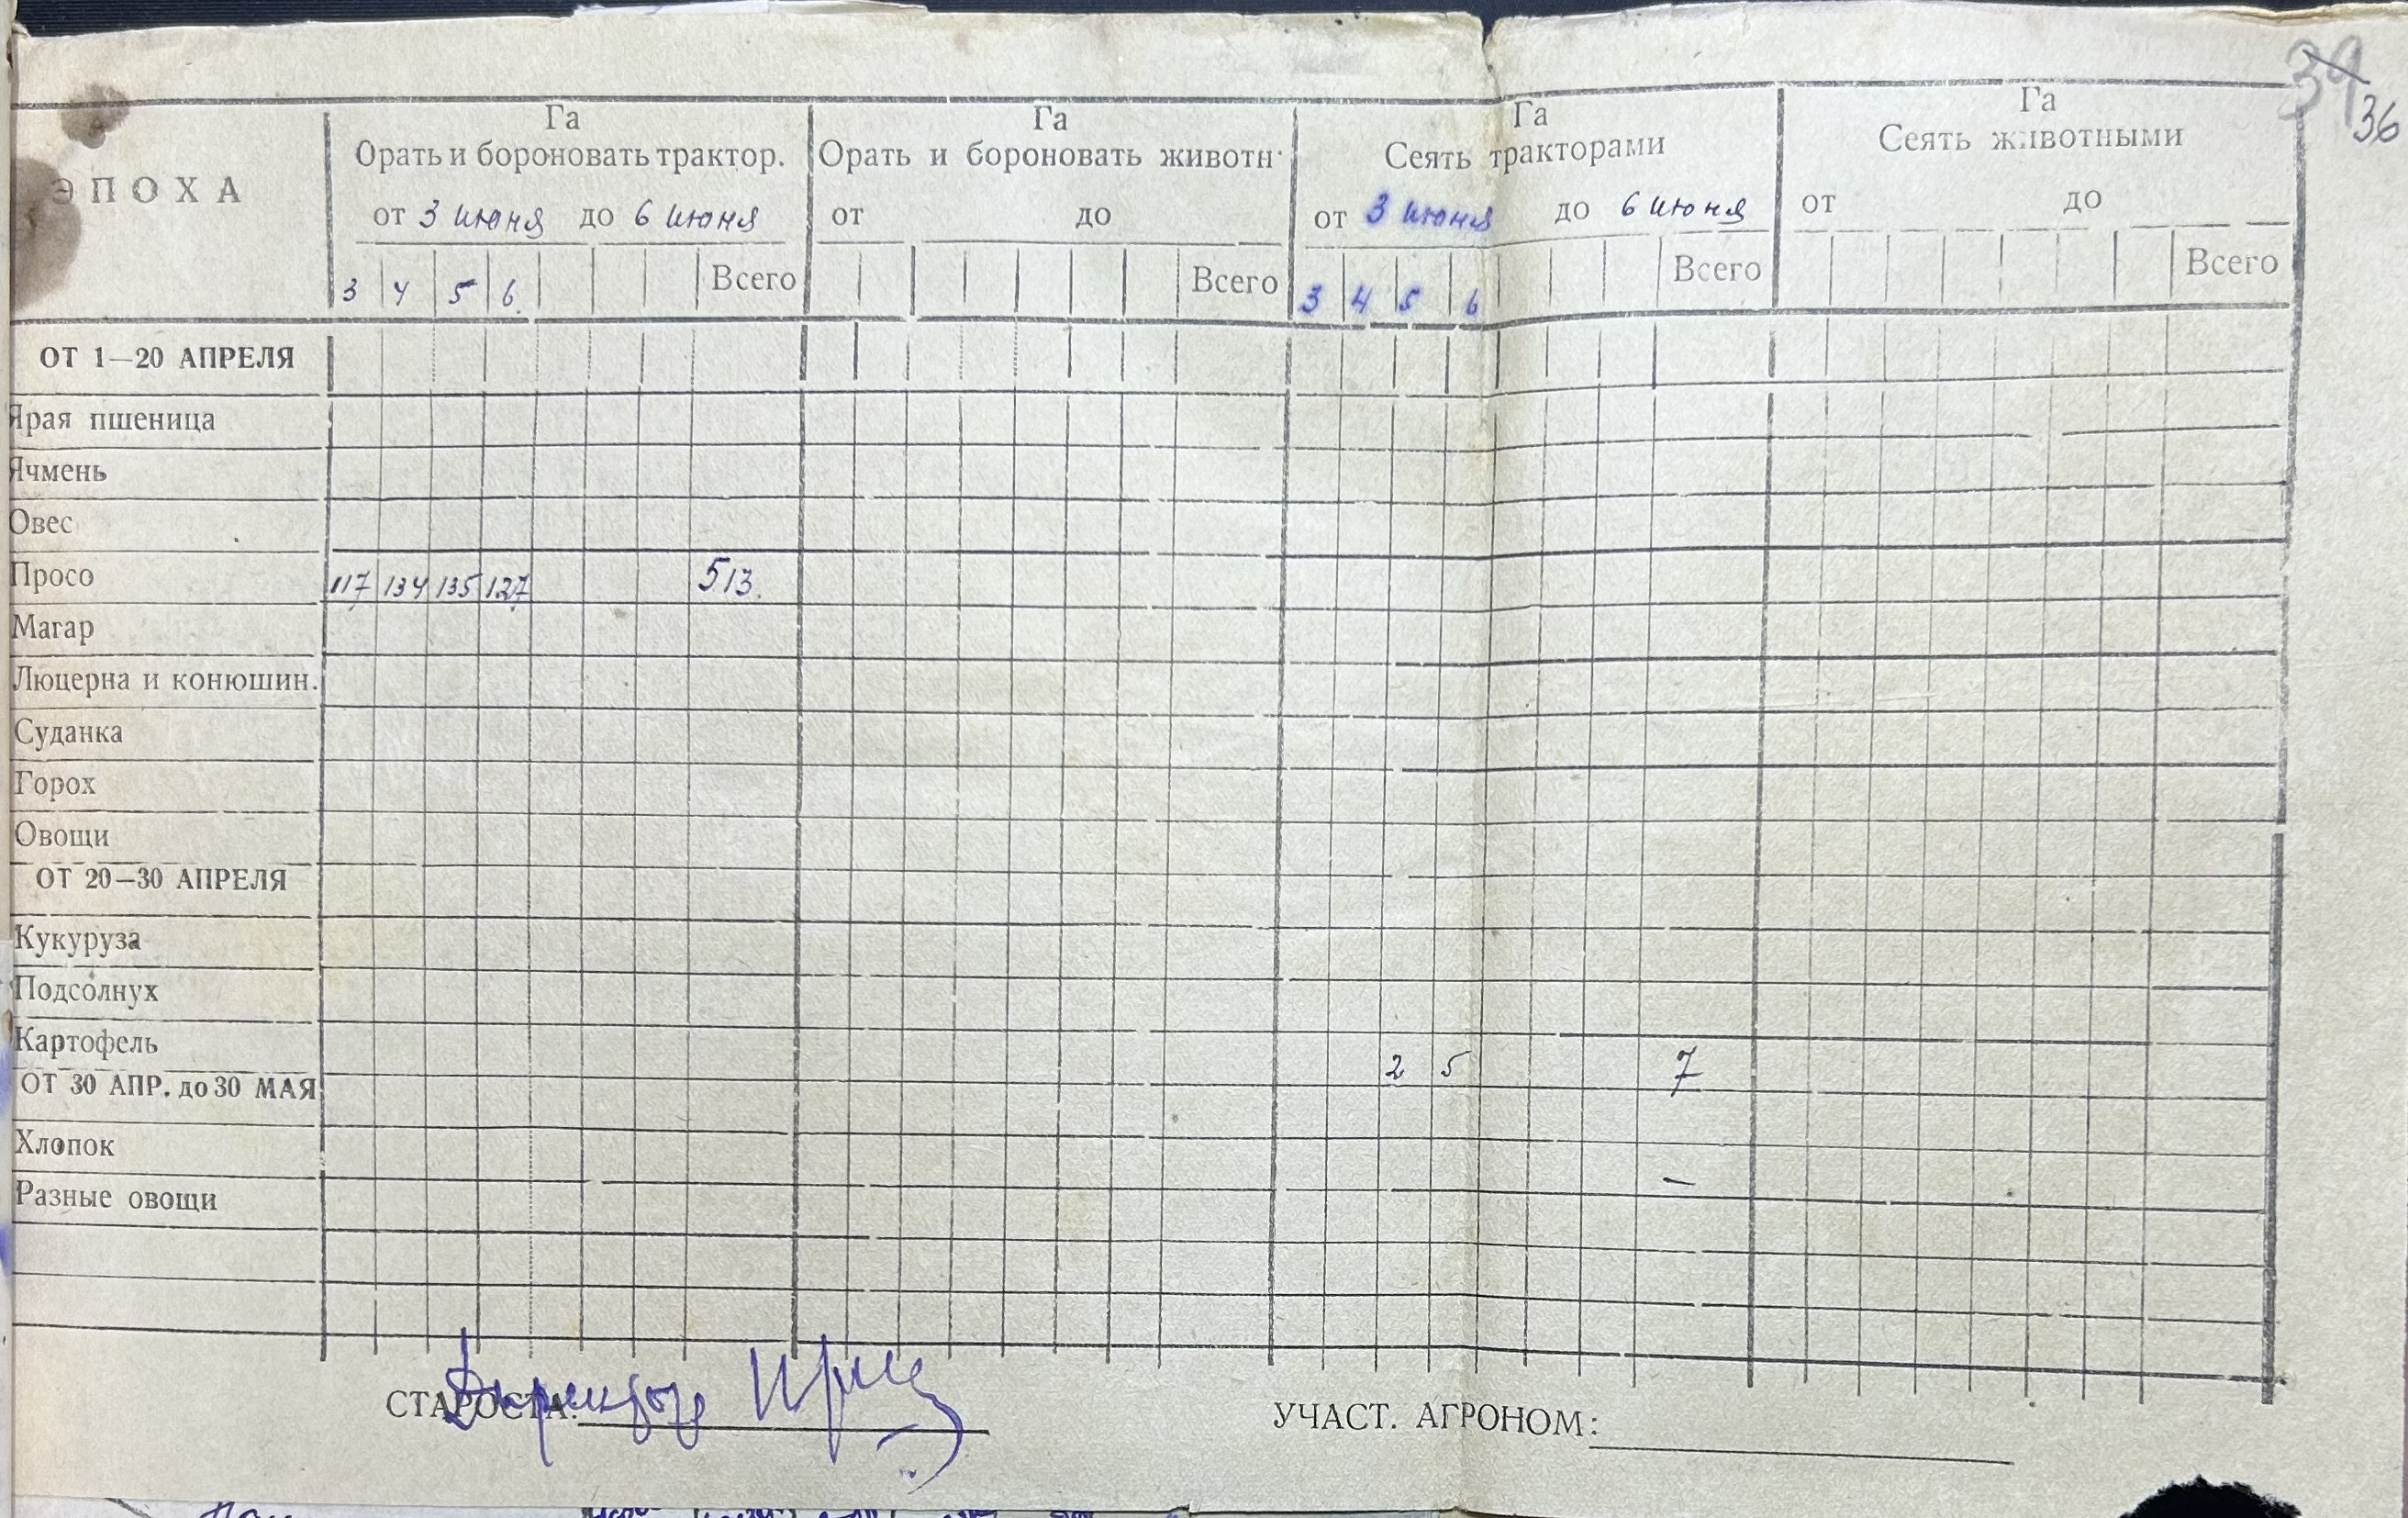 39
36
Га Га Га Га
ЭПОХА Орать и бороновать трактор. Орать и бороновать животн. Сеять тракторами Сеять животными
от 3 июня до 6 июня от до от 3 июня до 6 июня от до
3 4 5 6 Всего Всего 3 4 5 6 Всего Всего
ОТ 1—20 АПРЕЛЯ
Ярая пшеница
Ячмень
Овес
Просо 117 134 135 127 513.
Магар
Люцерна и конюшин.
Суданка
Горох
Овощи
ОТ 20—30 АПРЕЛЯ
Кукуруза
Подсолнух
Картофель 2 5 7
ОТ 30 АПР. до 30 МАЯ
Хлопок
Разные овощи —
СТАРОСТА: Директор
УЧАСТ. АГРОНОМ: